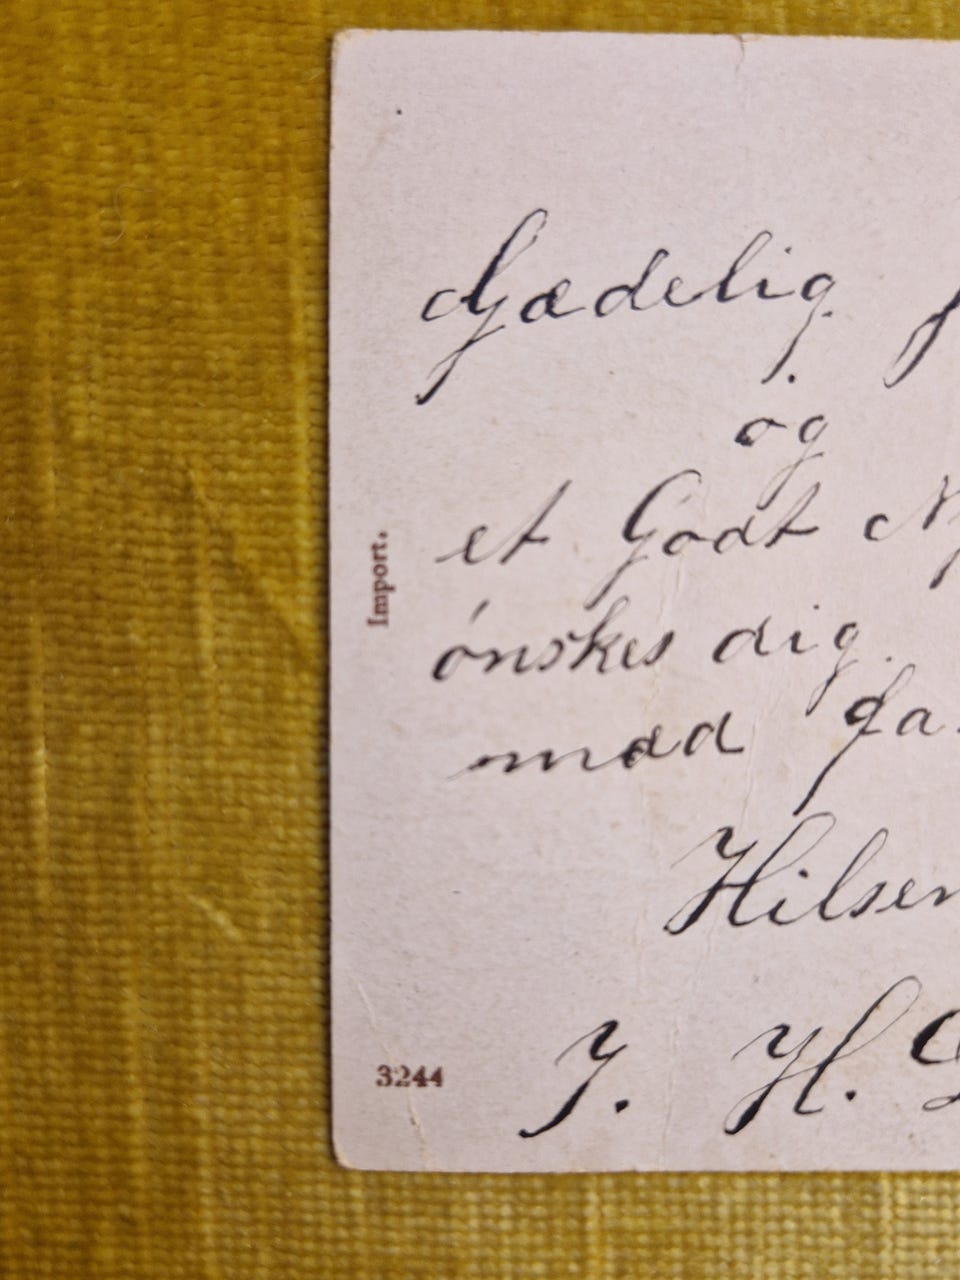 Gædelig
og
et Godt
ønskes dig.
med
Hilsen
J. H.
Import.
3244